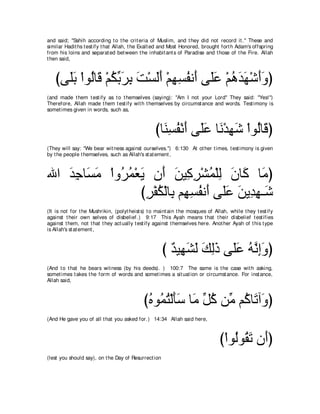 and said, "Sahih according to the criteria of Muslim, and they did not record it." These and
similar Hadiths testify that Allah, the Exalted and Most Honored, brought forth Adam's offspring
from his loins and separated between the inhabitants of Paradise and those of the Fire. Allah
then said,
(وَأَشْهَدَهُمْ عَلَى أَنفُسِهِمْ أَلَسْتَ بِرَبِّكُمْ قَالُواْ بَلَى)
(and made them testify as to themselves (saying): "Am I not your Lord" They said: "Yes!")
Therefore, Allah made them testify with themselves by circumstance and words. Testimony is
sometimes given in words, such as,
(قَالُواْ شَهِدْنَا عَلَى أَنْفُسِنَا)
(They will say: "We bear witness against ourselves.") 6:130 At other times, testimony is given
by the people themselves, such as Allah's statement,
(مَا كَانَ لِلْمُشْرِكِينَ أَن يَعْمُرُواْ مَسَاجِدَ الله
شَـهِدِينَ عَلَى أَنفُسِهِم بِالْكُفْرِ)
(It is not for the Mushrikin, (polytheists) to maintain the mosques of Allah, while they testify
against their own selves of disbelief.) 9:17 This Ayah means that their disbelief testifies
against them, not that they actually testify against themselves here. Another Ayah of this type
is Allah's statement,
(وَإِنَّهُ عَلَى ذَلِكَ لَشَهِيدٌ )
(And to that he bears witness (by his deeds). ) 100:7 The same is the case with asking,
sometimes takes the form of words and sometimes a situation or circumstance. For instance,
Allah said,
(وَآتَاكُم مِّن كُلِّ مَا سَأَلْتُمُوهُ)
(And He gave you of all that you asked for.) 14:34 Allah said here,
(أَن تَقُولُواْ)
(lest you should say), on the Day of Resurrection